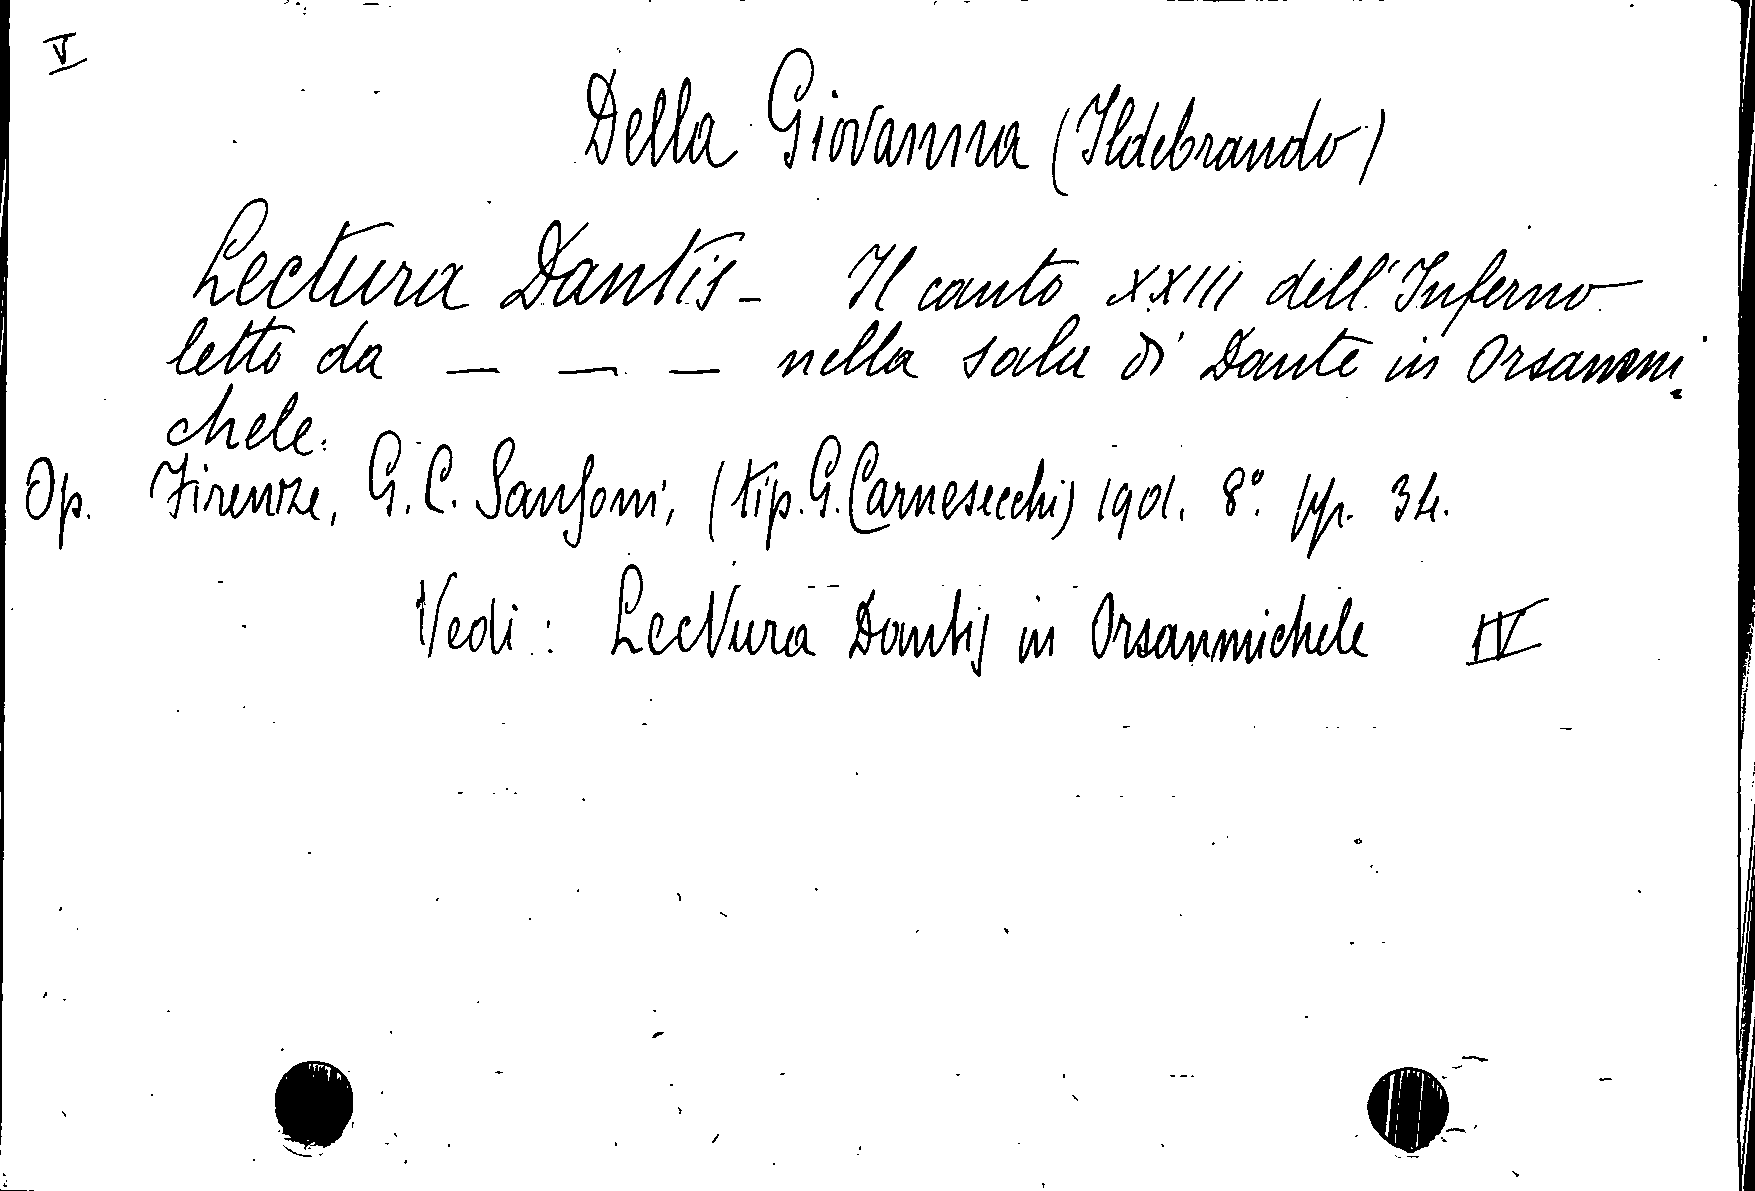 V
Della Giovanna (Ildebrando)
Lectura Dantis - Il canto XXIII dell'Inferno
letto da _ _ _ nella sala di Dante in Orsanmi
chele.
Op. Firenze, G. C. Sansoni, (tip. G. Carnesecchi) 1901. 8° pp. 34.
Vedi: Lectura Dantis in Orsanmichele IV